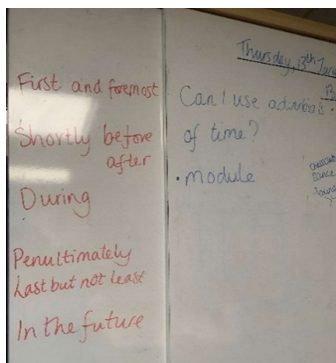 First and foremost
Shortly before
after
During
Penultimately
Last but not least
In the future
Thursday, 13th June
Can I use adverbials
of time?
• module